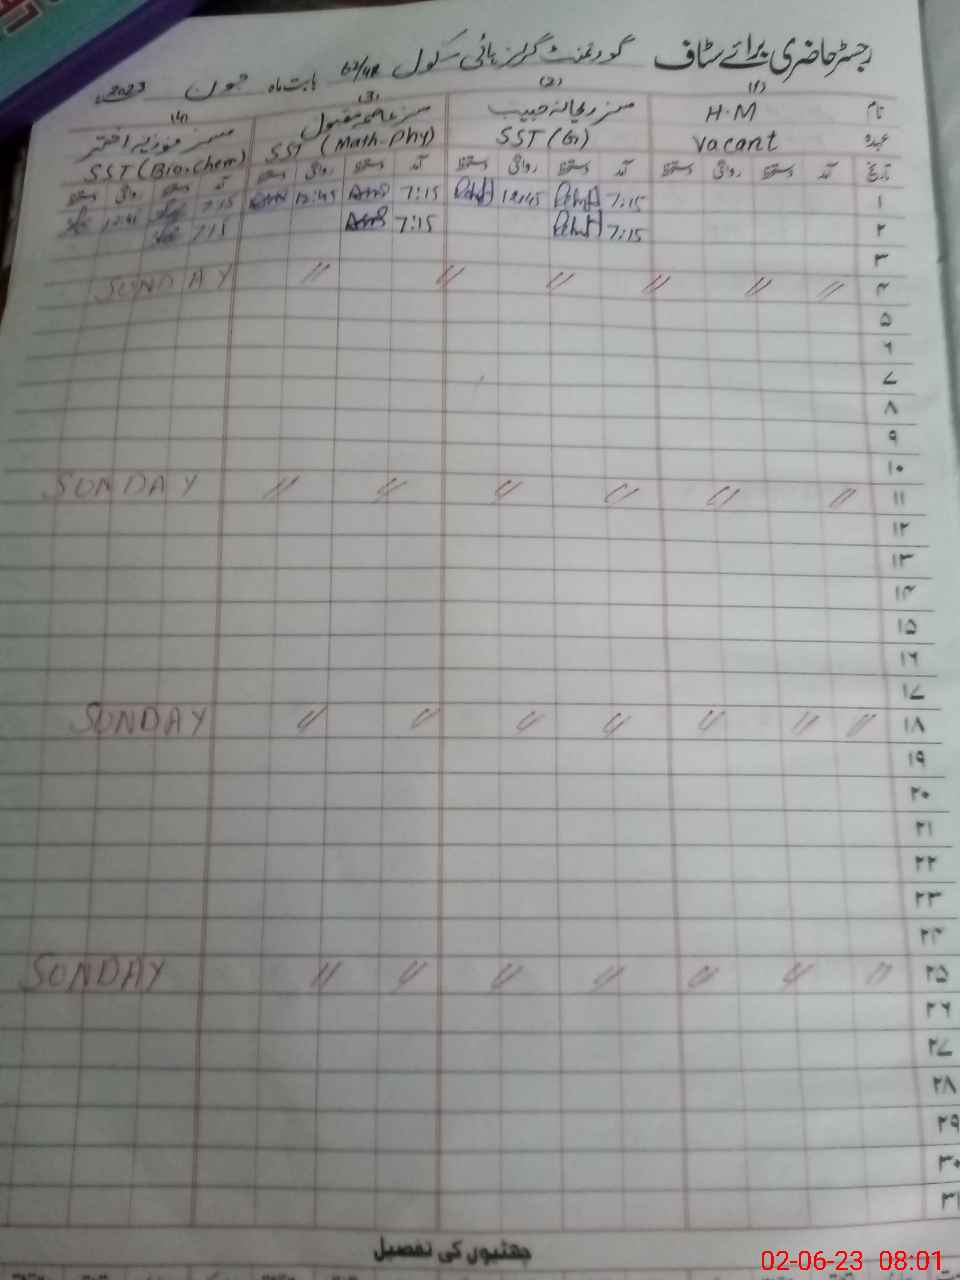 رجسٹر حاضری برائے سٹاف گورنمنٹ گرلز ہائی سکول 63/4R بابت ماہ جون 2023ء
(1) (2) (3) (4)
نام H.M مسز ریحانہ حبیب مسز عاصمہ مقبول مسز فوزیہ اختر
عہدہ Vacant SST (G) SST (Math-Phy) SST (Bio.Chem)
تاریخ آمد دستخط روانگی دستخط آمد دستخط روانگی دستخط آمد دستخط روانگی دستخط آمد دستخط روانگی دستخط
۱ 7:15 12:45 7:15 12:45 7:15 12:45
۲ 7:15 7:15 7:15
۳
۴ // // // // // // // SUNDAY
۵
۶
۷
۸
۹
۱۰
۱۱ // // // // // // SUNDAY
۱۲
۱۳
۱۴
۱۵
۱۶
۱۷
۱۸ // // // // // // // SUNDAY
۱۹
۲۰
۲۱
۲۲
۲۳
۲۴
۲۵ // // // // // // // SUNDAY
۲۶
۲۷
۲۸
۲۹
۳۰
۳۱
چھٹیوں کی تفصیل
02-06-23 08:01